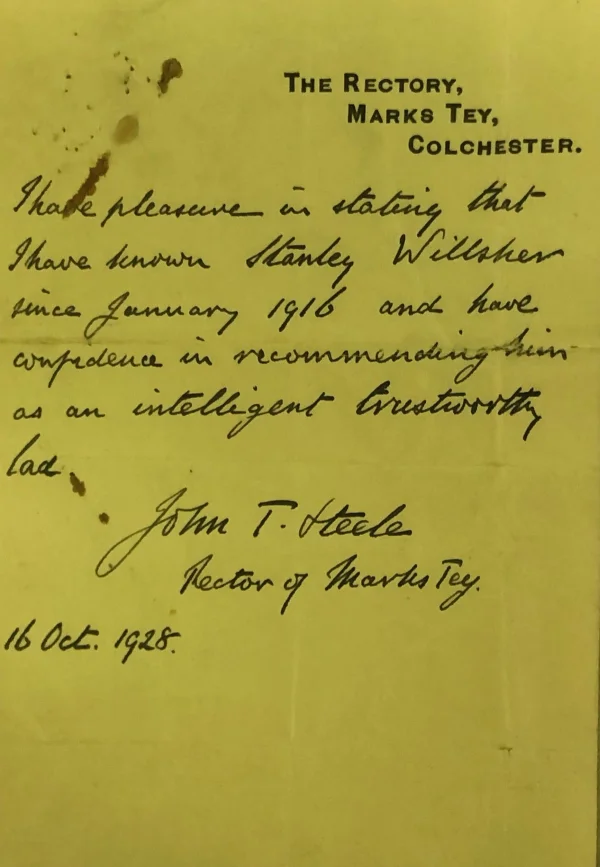 THE RECTORY,
MARKS TEY,
COLCHESTER.
I have pleasure in stating that
I have known Stanley Willsher
since January 1916 and have
confidence in recommending him
as an intelligent trustworthy
lad.
John T. Steele
Rector of Marks Tey.
16 Oct. 1928.